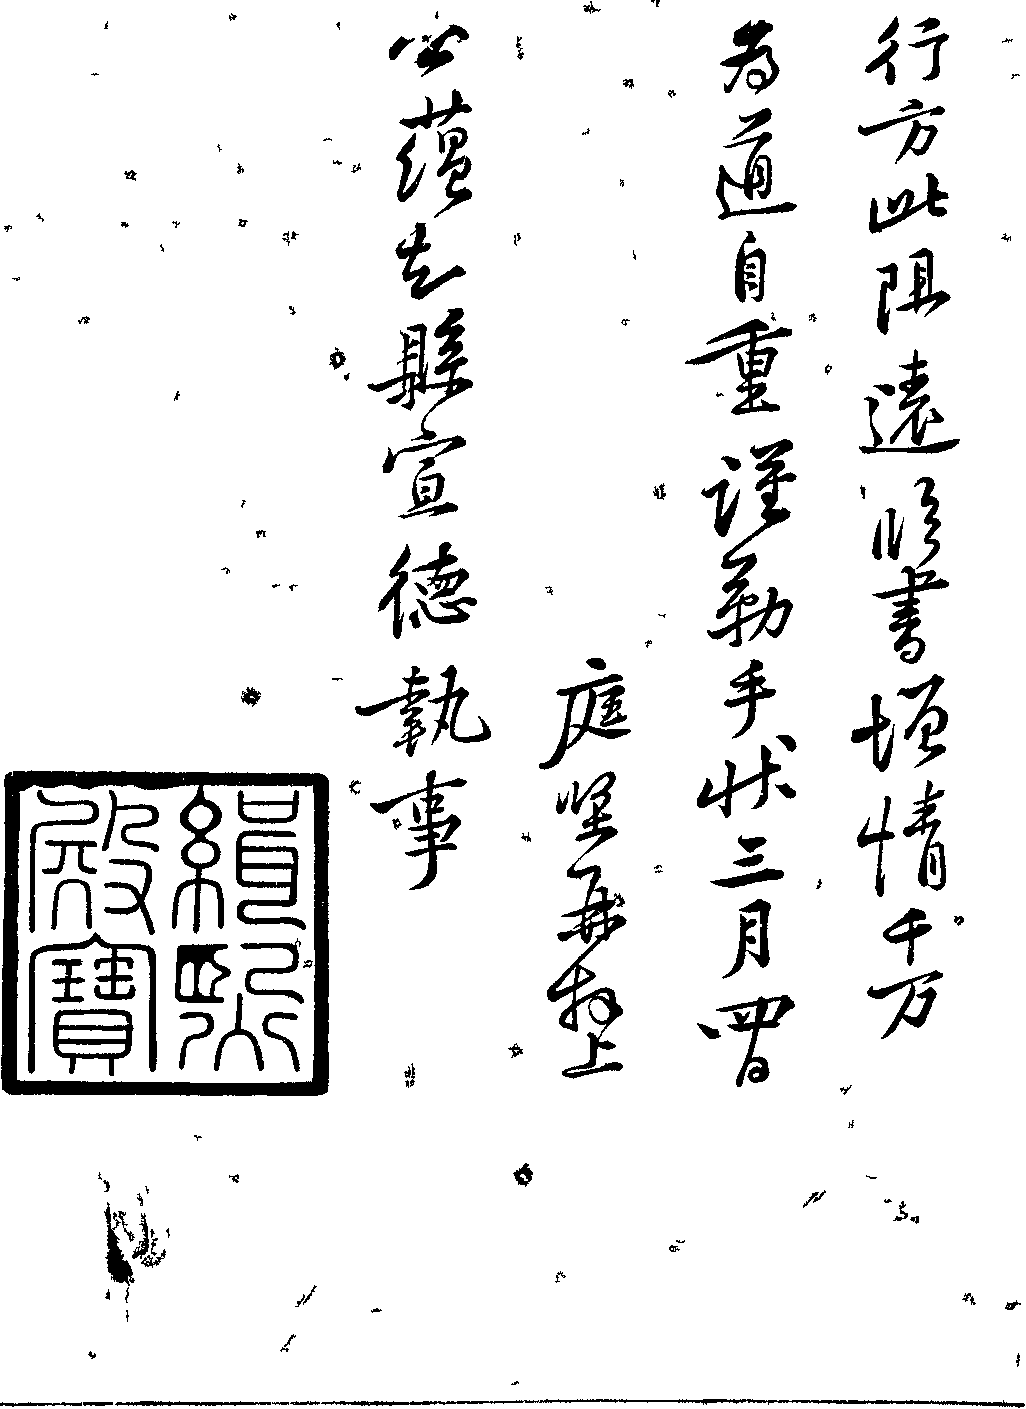 行方此阻遠臨書增情千万
為道自重謹勒手狀三月四日
庭堅再拜上
公蘊知縣宣德執事
緝熙
殿寶